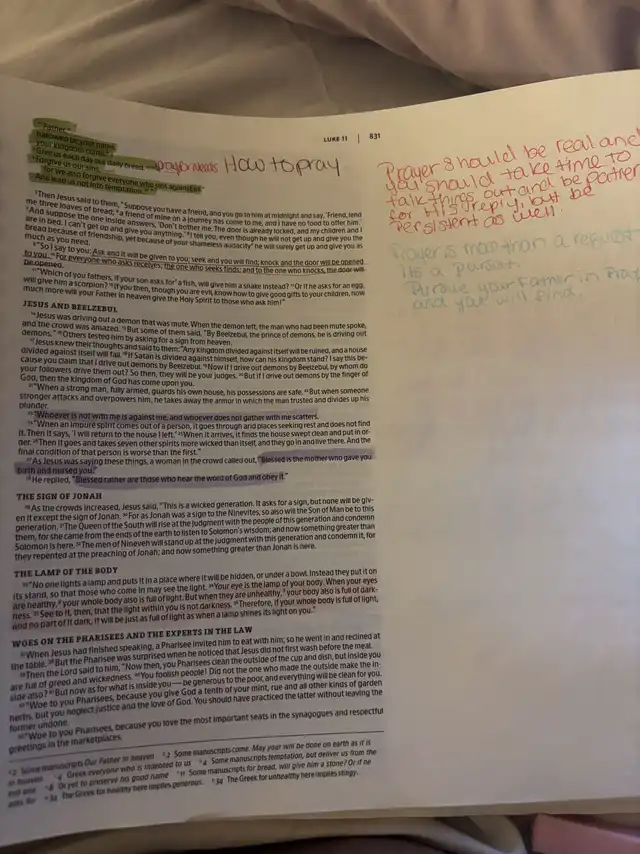 LUKE 11 | 831
"'Father,
hallowed be your name,
your kingdom come.
Give us each day our daily bread. pray for needs How to pray
Forgive us our sins,
for we also forgive everyone who sins against us.
And lead us not into temptation.'"
Prayer should be real and
you should take time to
talk things out and be patient
for His reply, but be
persistent as well
Prayer is more than a request
its a pursuit.
Pursue your Father in Prayer
and you will find.
5Then Jesus said to them, "Suppose you have a friend, and you go to him at midnight and say, 'Friend, lend
me three loaves of bread; 6a friend of mine on a journey has come to me, and I have no food to offer him.'
7And suppose the one inside answers, 'Don't bother me. The door is already locked, and my children and I
are in bed. I can't get up and give you anything.' 8I tell you, even though he will not get up and give you the
bread because of friendship, yet because of your shameless audacity he will surely get up and give you as
much as you need.
9"So I say to you: Ask and it will be given to you; seek and you will find; knock and the door will be opened
to you. 10For everyone who asks receives; the one who seeks finds; and to the one who knocks, the door will
be opened.
11"Which of you fathers, if your son asks for a fish, will give him a snake instead? 12Or if he asks for an egg,
will give him a scorpion? 13If you then, though you are evil, know how to give good gifts to your children, how
much more will your Father in heaven give the Holy Spirit to those who ask him!"
JESUS AND BEELZEBUL
14Jesus was driving out a demon that was mute. When the demon left, the man who had been mute spoke,
and the crowd was amazed. 15But some of them said, "By Beelzebul, the prince of demons, he is driving out
demons." 16Others tested him by asking for a sign from heaven.
17Jesus knew their thoughts and said to them: "Any kingdom divided against itself will be ruined, and a house
divided against itself will fall. 18If Satan is divided against himself, how can his kingdom stand? I say this be-
cause you claim that I drive out demons by Beelzebul. 19Now if I drive out demons by Beelzebul, by whom do
your followers drive them out? So then, they will be your judges. 20But if I drive out demons by the finger of
God, then the kingdom of God has come upon you.
21"When a strong man, fully armed, guards his own house, his possessions are safe. 22But when someone
stronger attacks and overpowers him, he takes away the armor in which the man trusted and divides up his
plunder.
23"Whoever is not with me is against me, and whoever does not gather with me scatters.
24"When an impure spirit comes out of a person, it goes through arid places seeking rest and does not find
it. Then it says, 'I will return to the house I left.' 25When it arrives, it finds the house swept clean and put in or-
der. 26Then it goes and takes seven other spirits more wicked than itself, and they go in and live there. And the
final condition of that person is worse than the first."
27As Jesus was saying these things, a woman in the crowd called out, "Blessed is the mother who gave you
birth and nursed you."
28He replied, "Blessed rather are those who hear the word of God and obey it."
THE SIGN OF JONAH
29As the crowds increased, Jesus said, "This is a wicked generation. It asks for a sign, but none will be giv-
en it except the sign of Jonah. 30For as Jonah was a sign to the Ninevites, so also will the Son of Man be to this
generation. 31The Queen of the South will rise at the judgment with the people of this generation and condemn
them, for she came from the ends of the earth to listen to Solomon's wisdom; and now something greater than
Solomon is here. 32The men of Nineveh will stand up at the judgment with this generation and condemn it, for
they repented at the preaching of Jonah; and now something greater than Jonah is here.
THE LAMP OF THE BODY
33"No one lights a lamp and puts it in a place where it will be hidden, or under a bowl. Instead they put it on
its stand, so that those who come in may see the light. 34Your eye is the lamp of your body. When your eyes
are healthy, your whole body also is full of light. But when they are unhealthy, your body also is full of dark-
ness. 35See to it, then, that the light within you is not darkness. 36Therefore, if your whole body is full of light,
and no part of it dark, it will be just as full of light as when a lamp shines its light on you."
WOES ON THE PHARISEES AND THE EXPERTS IN THE LAW
37When Jesus had finished speaking, a Pharisee invited him to eat with him; so he went in and reclined at
the table. 38But the Pharisee was surprised when he noticed that Jesus did not first wash before the meal.
39Then the Lord said to him, "Now then, you Pharisees clean the outside of the cup and dish, but inside you
are full of greed and wickedness. 40You foolish people! Did not the one who made the outside make the in-
side also? 41But now as for what is inside you—be generous to the poor, and everything will be clean for you.
42"Woe to you Pharisees, because you give God a tenth of your mint, rue and all other kinds of garden
herbs, but you neglect justice and the love of God. You should have practiced the latter without leaving the
former undone.
43"Woe to you Pharisees, because you love the most important seats in the synagogues and respectful
greetings in the marketplaces.
2 Some manuscripts Our Father in heaven 2 Some manuscripts come. May your will be done on earth as it is
in heaven. 4 Greek everyone who is indebted to us 4 Some manuscripts temptation, but deliver us from the
evil one 8 Or yet to preserve his good name 11 Some manuscripts for bread, will give him a stone? Or if he
asks for 34 The Greek for healthy here implies generous. 34 The Greek for unhealthy here implies stingy.